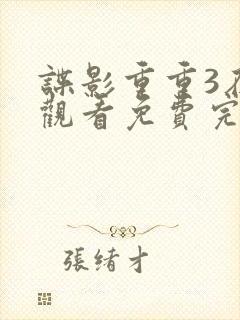 諜影重重3
觀看免費完
張緒才